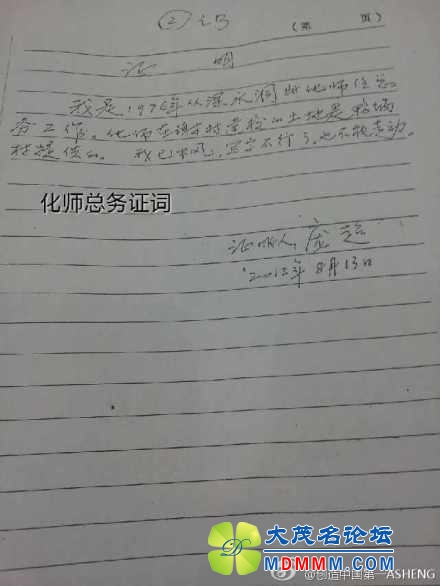 ② 之 3
（第 页）
证 明
我是1976年从深水洞到化师任总
务工作。化师在该村建校的土地是
村提供的。我已中风，写字不行了，也不能走动。
化师总务证词
证明人 庞
2012年8月13日
大茂名论坛
MDMMM.COM
@创造中国第一ASHENG